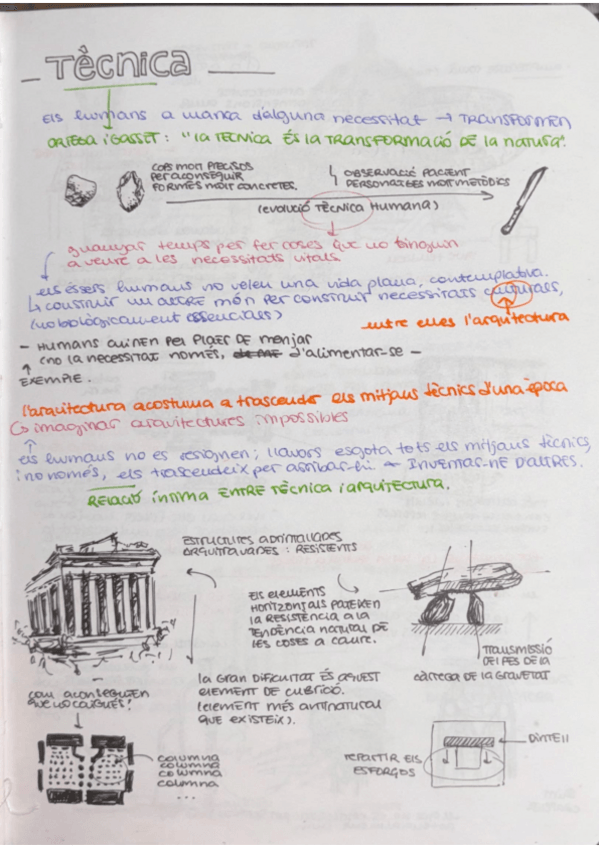 Tècnica
Els humans a manca d'alguna necessitat → TRANSFORMEN
ORTEGA i GASSET: "la TÈCNICA ÉS la TRANSFORMACIÓ DE la NATURA".
COPS MOLT PRECISOS
PER ACONSEGUIR
FORMES MOLT CONCRETES.
OBSERVACIÓ PACIENT
PERSONATGES MOLT METÒDICS
(EVOLUCIÓ TÈCNICA HUMANA)
guanyar temps per fer coses que no tinguin
a veure a les necessitats vitals
els éssers humans no volen una vida plana, contemplativa.
↳ construir un altre món per construir necessitats culturals,
(no biològicament essencials)
entre elles l'arquitectura
- HUMANS CUINEN PEL PLAER DE MENJAR
(NO la NECESSITAT NOMÉS, d'ALIMENTAR-SE -
EXEMPLE.
l'arquitectura acostuma a trascendir els mitjans tècnics d'una època
imaginar arquitectures impossibles
els humans no es resignen; llavors esgota tots els mitjans tècnics,
i no només, els trascendeix per arribar-hi INVENTAR-NE D'ALTRES.
RELACIÓ ÍNTIMA ENTRE TÈCNICA i ARQUITECTURA.
ESTRUCTURES ADINTELLADES
ARQUITRAVADES: RESISTENTS
Els elements
HORITZONTALS PATEIXEN
la RESISTÈNCIA A la
TENDÈNCIA NATURAL DE
les COSES A CAURE.
TRANSMISSIÓ
DEL PES DE la
CÀRREGA DE LA GRAVETAT
COM ACONSEGUIEN
QUE NO CAIGUÉS!
la GRAN DIFICULTAT ÉS AQUEST
ELEMENT DE CUBRICIÓ.
(ELEMENT MÉS ANTINATURAL
QUE EXISTEIX).
columna
columna
columna
columna
...
REPARTIR ELS
ESFORÇOS
DINTELL